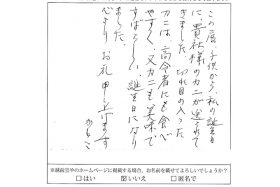 この度、子供から、誕生日
に、貴社様のカニが送られて
きました。切れ目の入った
カニは、高令者にも食べ
やすく、又カニも美味で
すばらしい、誕生日になり
ました。
心よりお礼申し上げます
※越前宝やのホームページに掲載する場合、お名前を載せてよろしいでしょうか?
□はい ☑いいえ □匿名で